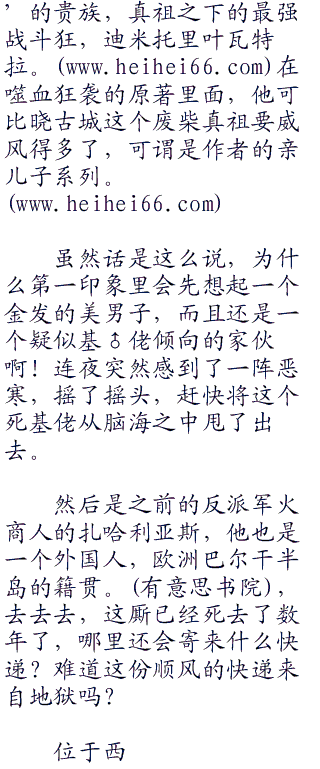 ’的贵族，真祖之下的最强
战斗狂，迪米托里叶瓦特
拉。(www.heihei66.com)在
噬血狂袭的原著里面，他可
比晓古城这个废柴真祖要威
风得多了，可谓是作者的亲
儿子系列。
(www.heihei66.com)
虽然话是这么说，为什
么第一印象里会先想起一个
金发的美男子，而且还是一
个疑似基♂佬倾向的家伙
啊！连夜突然感到了一阵恶
寒，摇了摇头，赶快将这个
死基佬从脑海之中甩了出
去。
然后是之前的反派军火
商人的扎哈利亚斯，他也是
一个外国人，欧洲巴尔干半
岛的籍贯。(有意思书院)，
去去去，这厮已经死去了数
年了，哪里还会寄来什么快
递？难道这份顺风的快递来
自地狱吗？
位于西